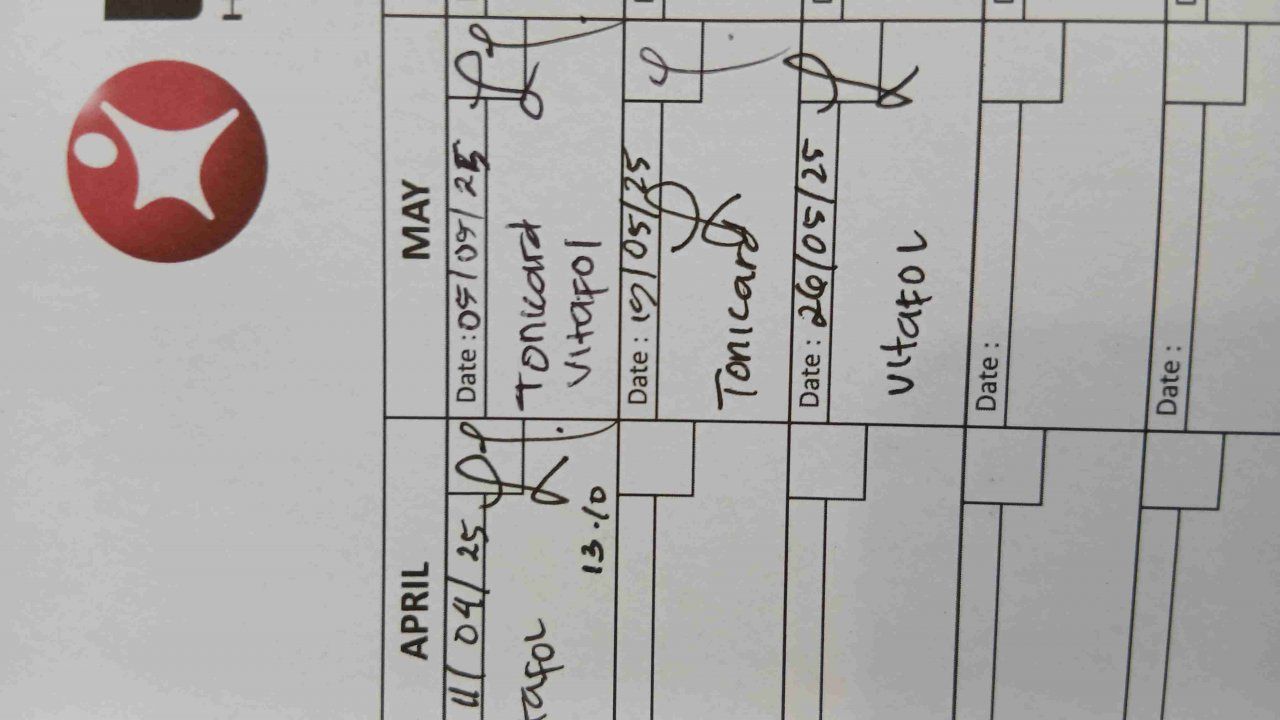 APRIL
11/04/25
tafol
13.10
MAY
Date : 05/05/25
Tonicard
VitaFol
Date : 19/05/25
Tonicard
Date : 26/05/25
VitaFOL
Date :
Date :